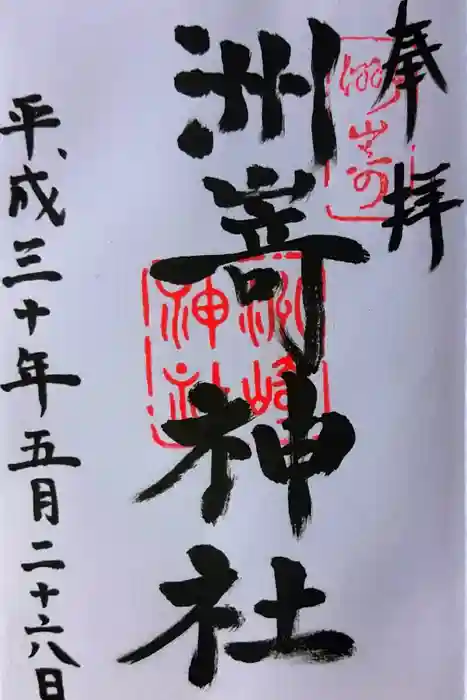 奉拝
洲嵜神社
平成三十年五月二十六日
洲嵜
洲崎神社